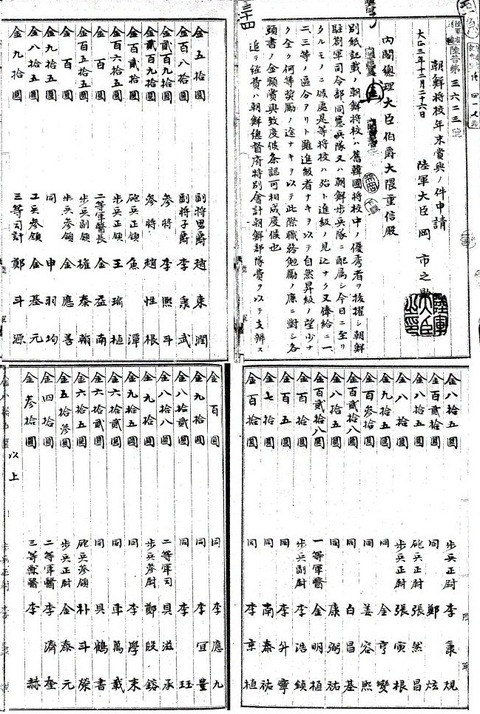 陸普第三六二三號
朝鮮將校年末賞與ノ件申請
大正三年十二月二十六日
陸軍大臣 岡市之助
內閣總理大臣伯爵大隈重信殿
別紙記載ノ朝鮮將校ハ舊韓國將校中ノ優秀者ヲ拔擢シ朝鮮
駐劄軍司令部同憲兵隊又ハ朝鮮步兵隊ニ配屬シ今日ニ至リ
タルモノニ候處是等將校ハ殆ト進級ノ見込ナク又俸給ニ一、
二、三等ノ區分アリト雖進級者ナキヲ以テ自然昇級ノ望少ナ
ク全ク何等奬勵ノ途ナキヲ以テ此際職務勉勵ノ廉ニ對シ各
頭書ノ金額賞與致度候條認可相成度候也
追テ經費ハ朝鮮總督府特別會計朝鮮部隊費ヲ以テ支辨ス
金五拾圓 副將男爵 趙東潤
金百八拾圓 副將子爵 李秉武
金貳百九拾圓 參將 李熙斗
金貳百九拾圓 參將 趙性根
金百貳拾圓 砲兵正領 魚潭
金百六拾五圓 步兵正領 王瑜植
金百五拾五圓 二等軍醫長 金益南
金百圓 步兵副領 泰翰
步兵參領 金應善
同 申羽均
金八拾五圓 工兵參領 金基元
金九拾圓 三等司計 鄭斗源
金八拾五圓 步兵正尉 李秉規
金百貳拾圓 同 鄭炫
金八拾五圓 砲兵正尉 張然昌
金八拾圓 步兵正尉 張寅根
金九拾五圓 同 金亨燮
金百參拾圓 同 姜容熙
金百貳拾八圓 同 白昌基
金八拾五圓 同 康弼祐
金百貳拾八圓 一等軍醫 金明植
金百拾圓 步兵副尉 李浩鎮
金百五圓 同 李升寧
金七拾圓 同 南泰祐
金百拾圓 同 李章植
金百圓 同 李應九
金九拾圓 同 李珏
金八拾貳圓 同 李宜量
金八拾八圓 二等軍司 具滋承
金九拾圓 步兵參尉 鄭殷鎔
金九拾五圓 同 李學來
金六拾貳圓 同 車萬載
金六拾貳圓 同 具鶴書
金六拾五圓 砲兵參領 朴斗榮
金五拾參圓 步兵正尉 金泰元
金四拾圓 二等軍醫 李濟奎
金參拾圓 三等獸醫 李赫
以上